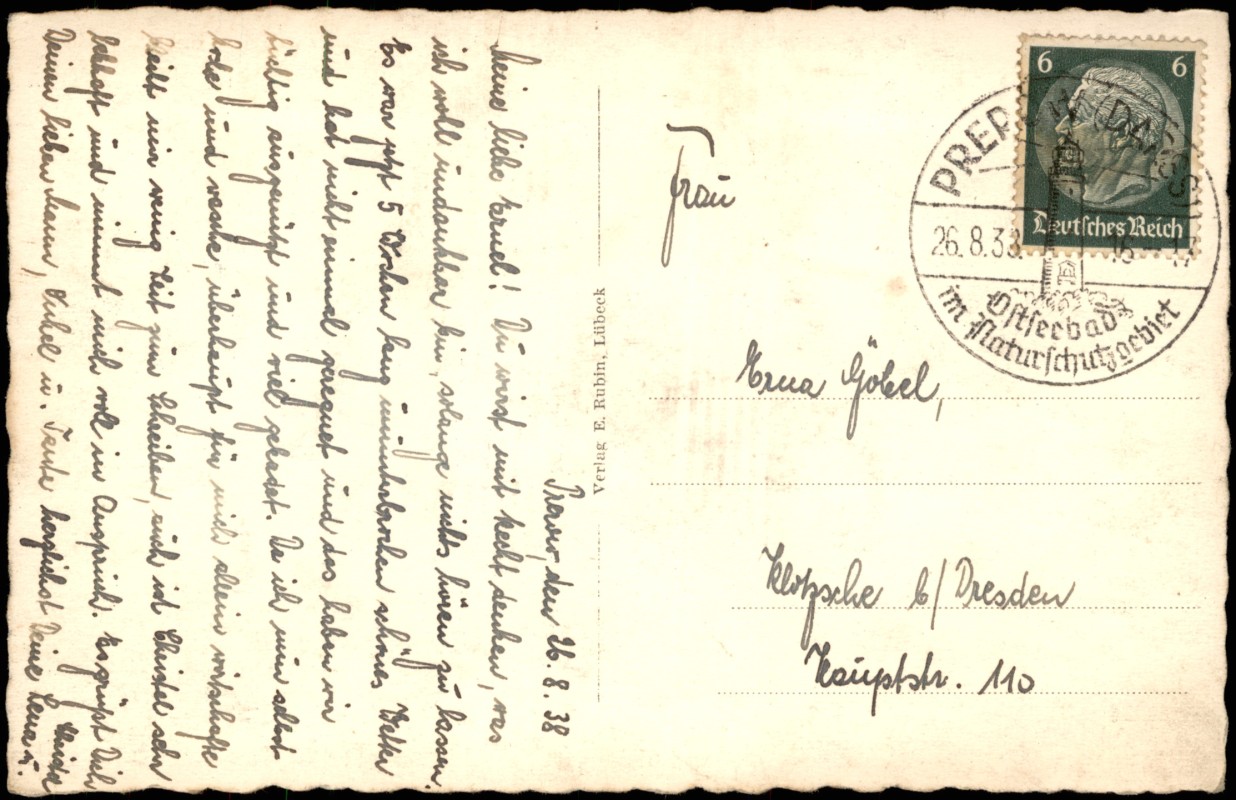 Prerow, den 26.8.38
Meine liebe Ernel! Du wirst mit Recht denken, was
ich wohl undankbar bin, solange nichts hören zu lassen.
Es war jetzt 5 Wochen lang ununterbrochen schönes Wetter
und hat nicht einmal geregnet und das haben wir
tüchtig ausgenützt und viel gebadet. Da ich nun selbst
koche und wasche, überhaupt für mich allein wirtschafte
bleibt mir wenig Zeit zum Schreiben, auch ist Christel sehr
lebhaft und nimmt mich voll in Anspruch. Es grüßt Dich
Deinen lieben Mann, Onkel u. Tante herzlichst Deine Lena u.
Verlag E. Rubin, Lübeck
6 6
Deutsches Reich
PREROW (DARSS)
26.8.38 16-17
Ostseebad
im Naturschutzgebiet
Frau
Erna Göbel,
Klotzsche b/Dresden
Hauptstr. 110